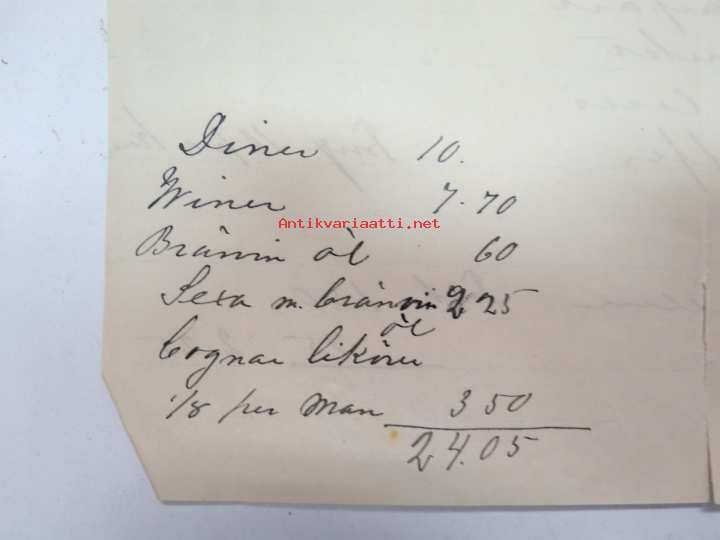 Diner 10.
Winer 7.70
Antikvariaatti.net
Bränvin öl 60
Sexa m. bränvin 2 25
öl
Cognac likörer
1/8 per Man 3 50
24.05